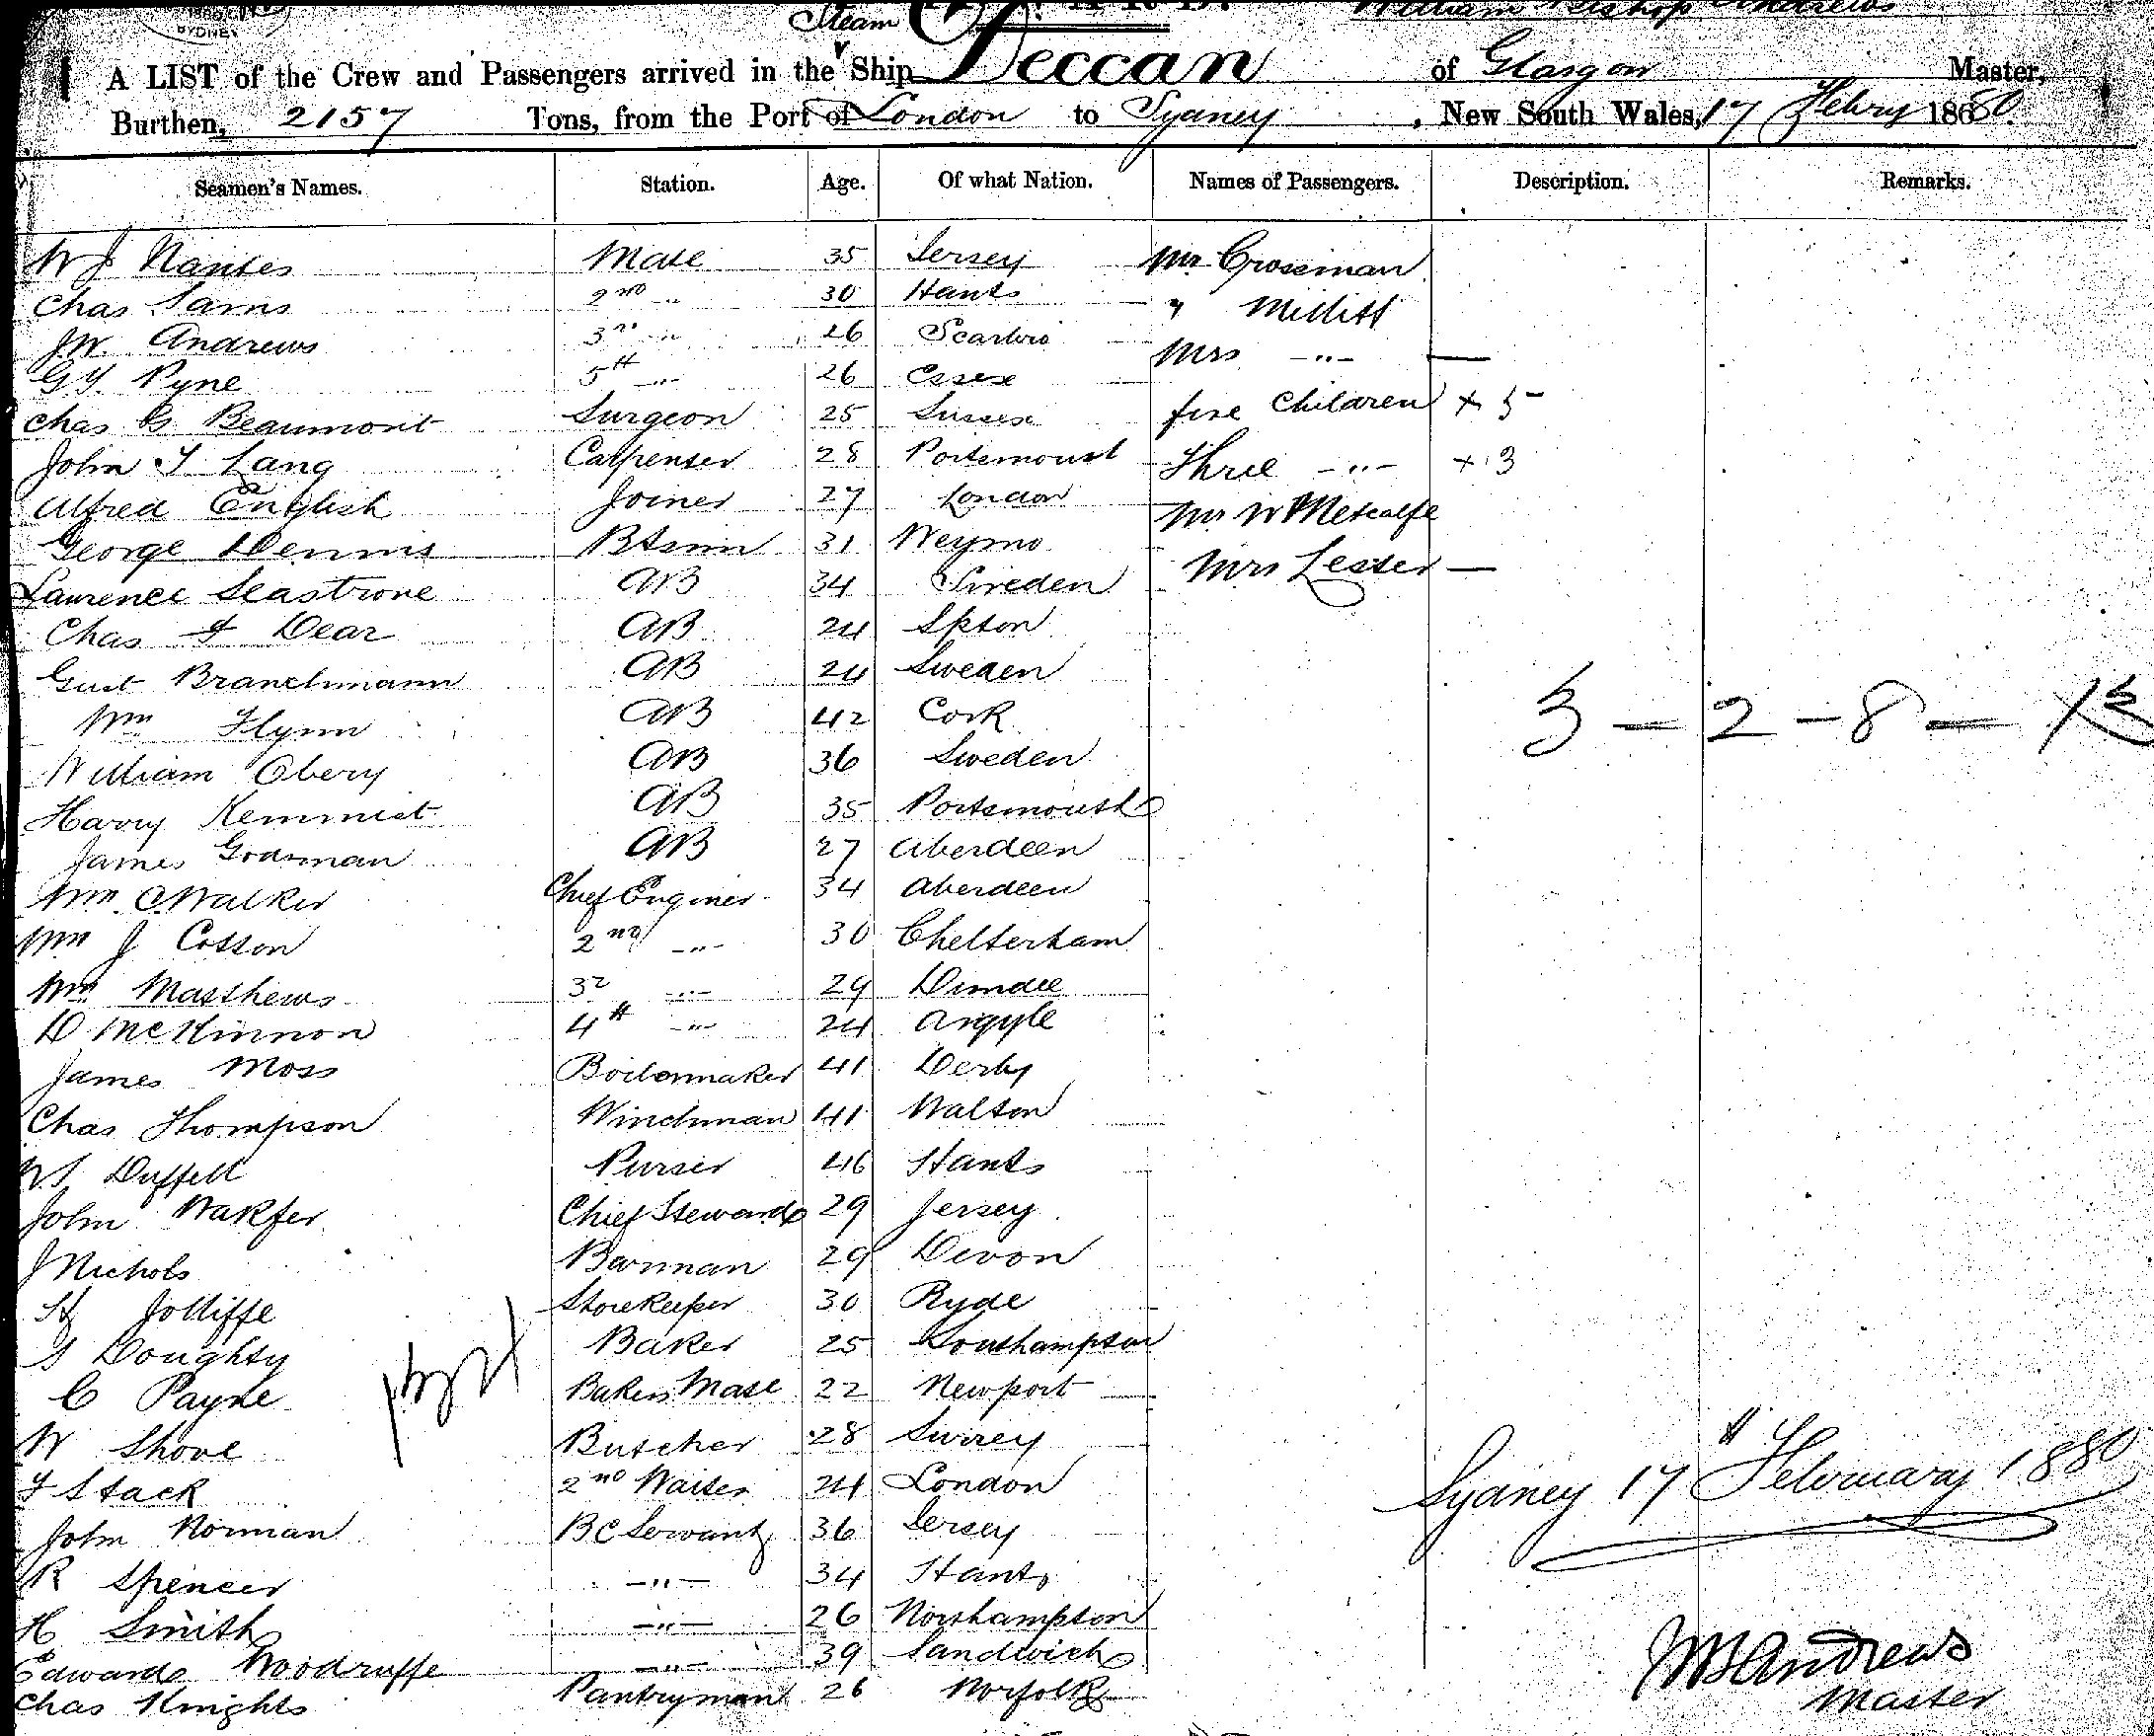 SYDNEY
Steam
A LIST of the Crew and Passengers arrived in the Ship Deccan of Glasgow Master,
Burthen, 2157 Tons, from the Port of London to Sydney, New South Wales, 17 Febry 1880.
Seamen's Names. Station. Age. Of what Nation. Names of Passengers. Description. Remarks.
W J Nantes Mate 35 Jersey Mr Grossman
Chas Sams 2nd -"- 30 Hants " Millitt
J W. Andrews 3rd -"- 26 Scarbro Mrs -"- —
G Y. Pyne 5th -"- 26 Essex
Chas G Beaumont Surgeon 25 Sussex five Children + 5
John T Lang Carpenter 28 Portsmouth Three -"- + 3
Alfred English Joiner 27 London Mr W Metcalfe
George Dennis Btsmn 31 Weymo
Laurence Seastrone AB 34 Sweden Mrs Lester —
Chas F Dear AB 24 Spton
Gust Branchmann AB 24 Sweden
Wm Flynn AB 42 Cork 3 — 2 — 8 — 13
William Obery AB 36 Sweden
Harry Kemmist AB 35 Portsmouth
James Godsman AB 27 Aberdeen
Wm C Walker Chief Enginer 34 Aberdeen
Wm J Cotton 2nd -"- 30 Cheltenham
Wm Matthews 3r -"- 29 Dundee
D McKinnon 4th -"- 24 Argyle
James Moss Boilermaker 41 Derby
Chas Thompson Winchman 41 Walton
Duffell Purser 46 Hants
John Wakfer Chief Steward 29 Jersey
J Nichols Barman 29 Devon
H Jolliffe Storekeeper 30 Ryde
Doughty Baker 25 Southampton
C Payne Bakers Mate 22 Newport
W Shove Butcher 28 Surrey
F Stack 2nd Waiter 24 London
Sydney 17th February 1880
John Norman BC Servant 36 Jersey
R Spencer -"- 34 Hants
H Smith -"- 26 Northampton
Edward Woodruffe -"- 39 Sandwich
W B Andrews
Chas Knights Pantryman 26 Norfolk
Master